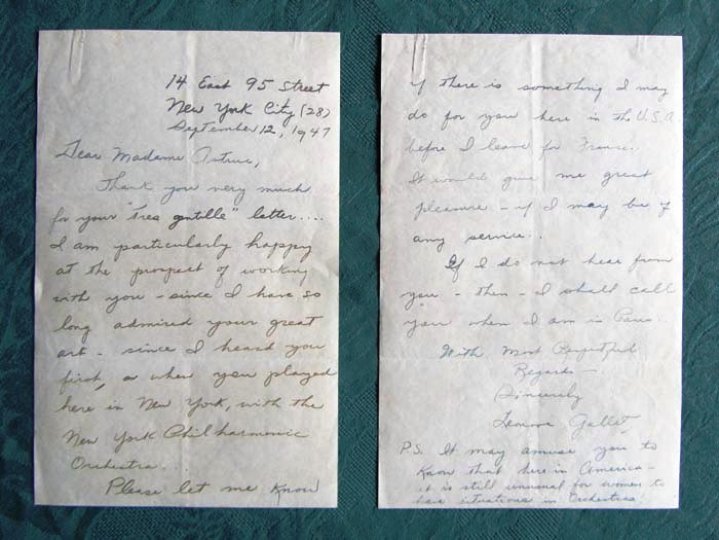 14 East 95 Street
New York City (28)
September 12, 1947
Dear Madame Astruc,
Thank you very much
for your "tres gentille" letter....
I am particularly happy
at the prospect of working
with you - since I have so
long admired your great
art - since I heard you
first, when you played
here in New York, with the
New York Philharmonic
Orchestra...
Please let me know
if there is something I may
do for you here in the U.S.A
before I leave for France.
It would give me great
pleasure - if I may be of
any service..
If I do not hear from
you - then - I shall call
you when I am in Paris..
With Most Respectful
Regards -
Sincerely
P.S. It may amuse you to
know that here in America -
it is still unusual for women to
have situations in Orchestras!